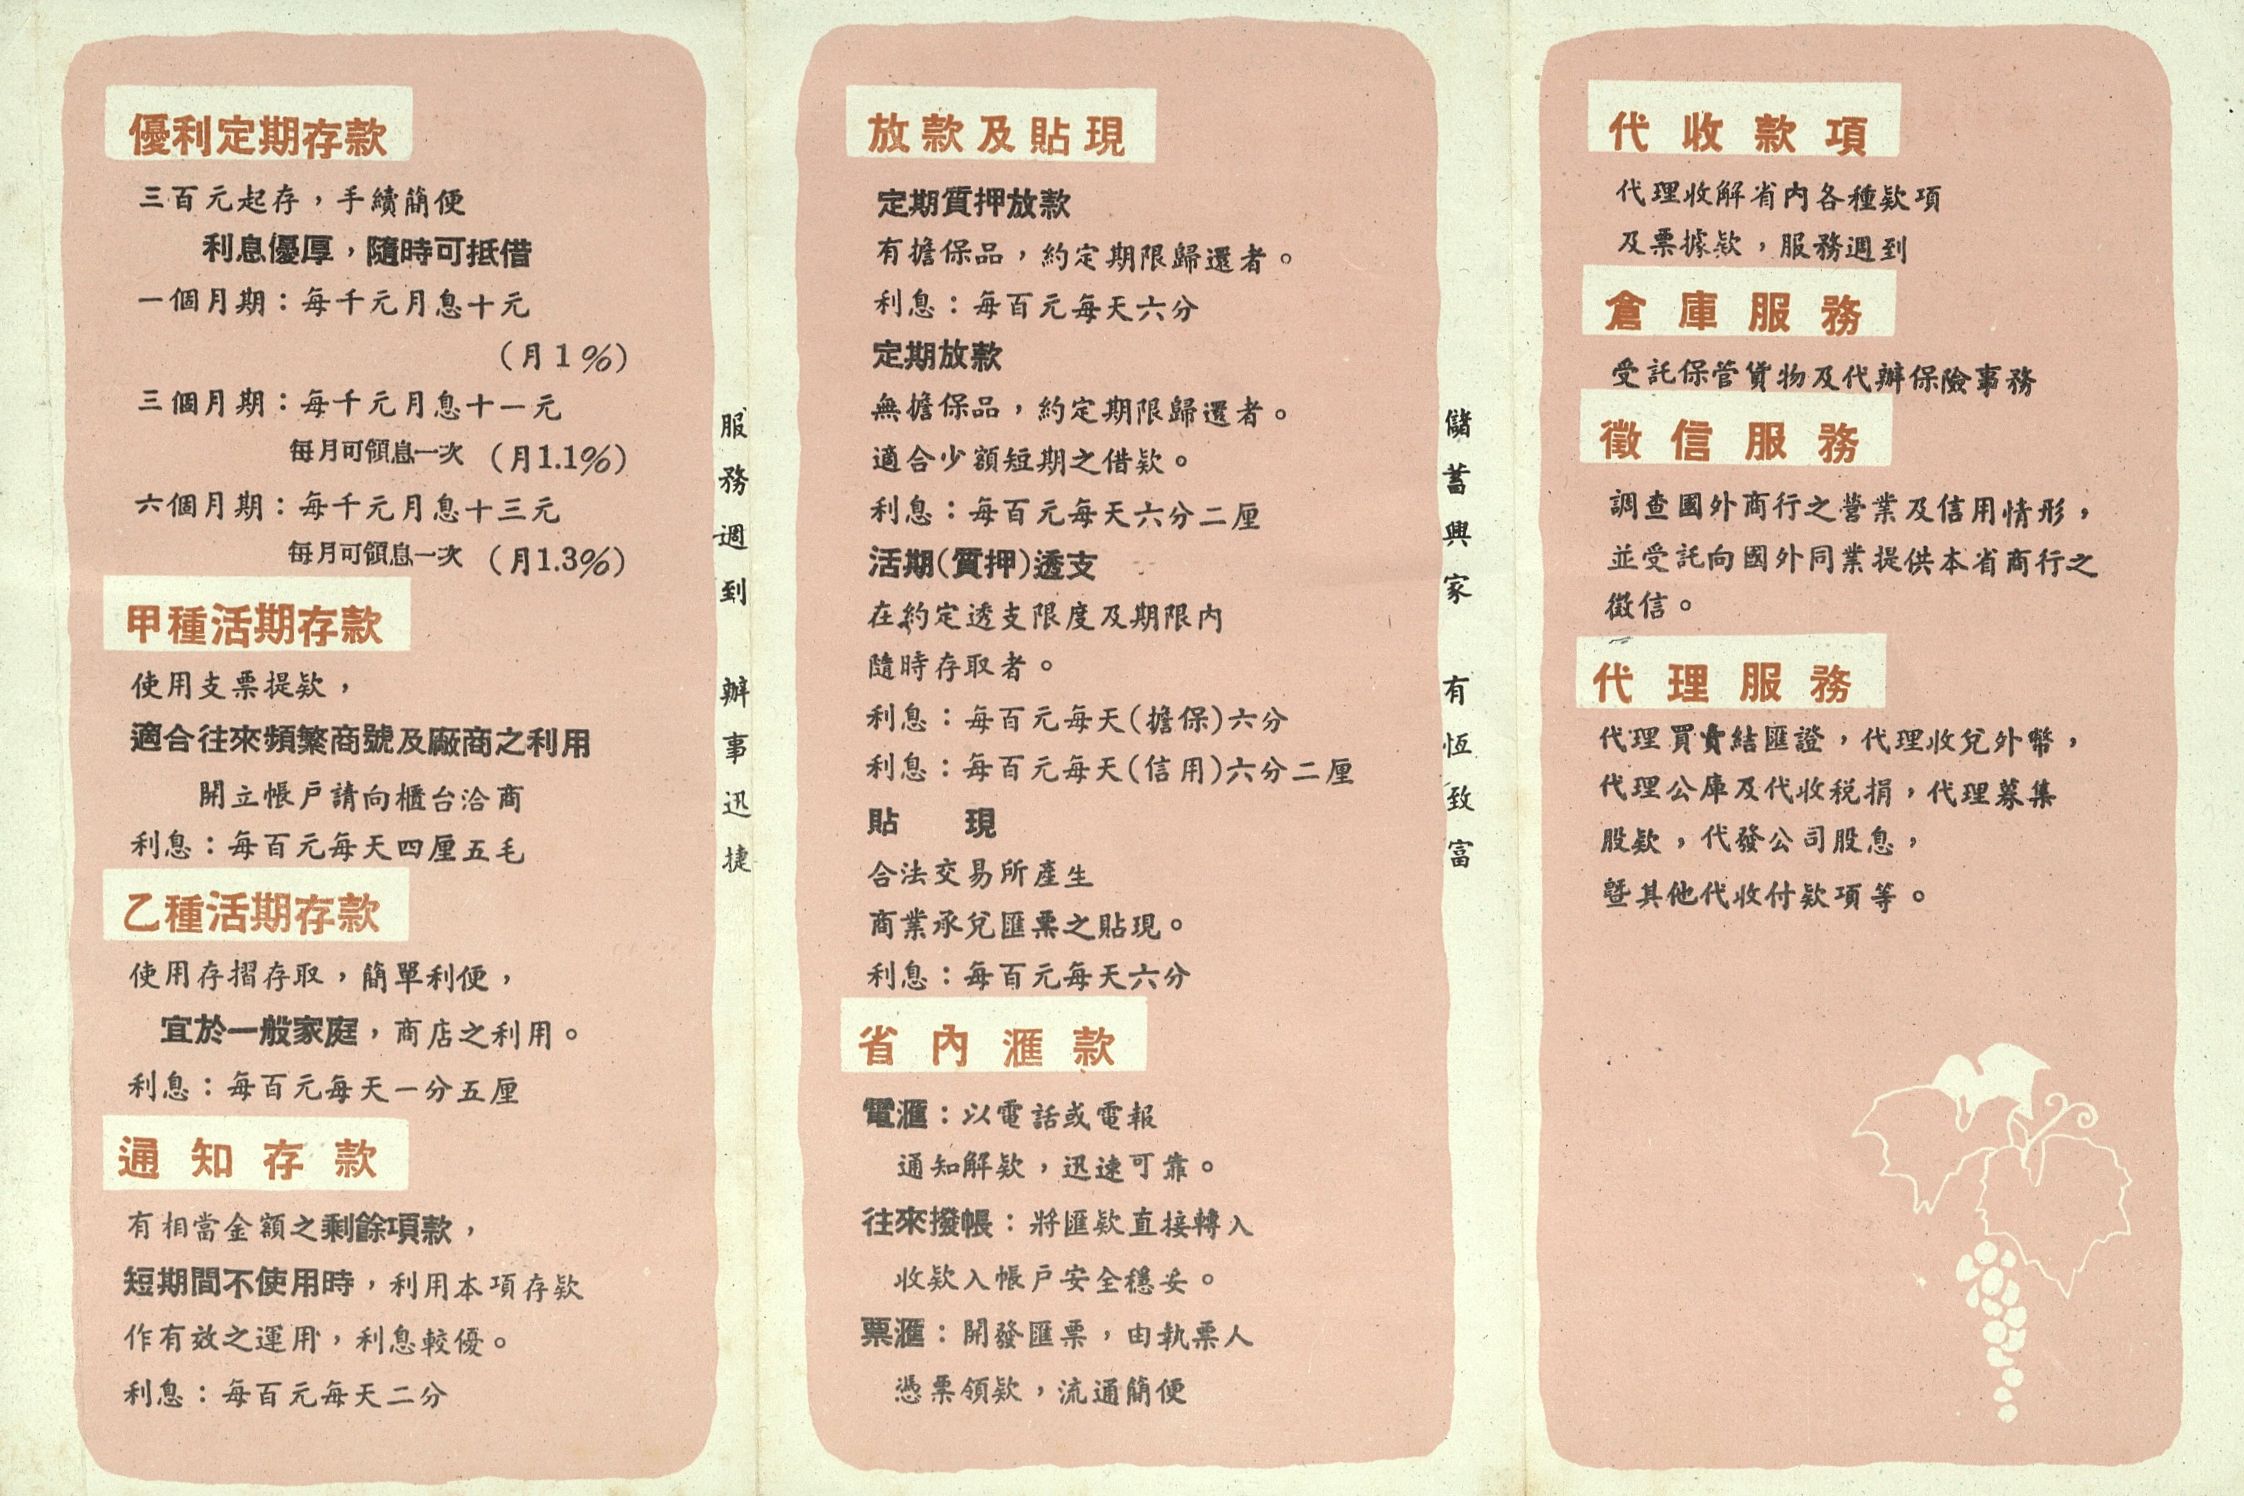 優利定期存款
三百元起存，手續簡便
利息優厚，隨時可抵借
一個月期：每千元月息十元
（月1%）
三個月期：每千元月息十一元
每月可領息一次（月1.1%）
六個月期：每千元月息十三元
每月可領息一次（月1.3%）
甲種活期存款
使用支票提欵，
適合往來頻繁商號及廠商之利用
開立帳戶請向櫃台洽商
利息：每百元每天四厘五毛
乙種活期存款
使用存摺存取，簡單利便，
宜於一般家庭，商店之利用。
利息：每百元每天一分五厘
通知存款
有相當金額之剩餘項款，
短期間不使用時，利用本項存欵
作有效之運用，利息較優。
利息：每百元每天二分
服務週到 辦事迅捷
放款及貼現
定期質押放款
有擔保品，約定期限歸還者。
利息：每百元每天六分
定期放款
無擔保品，約定期限歸還者。
適合少額短期之借欵。
利息：每百元每天六分二厘
活期(質押)透支
在約定透支限度及期限內
隨時存取者。
利息：每百元每天(擔保)六分
利息：每百元每天(信用)六分二厘
貼 現
合法交易所產生
商業承兌匯票之貼現。
利息：每百元每天六分
省內滙款
電滙：以電話或電報
通知解欵，迅速可靠。
往來撥帳：將匯欵直接轉入
收欵入帳戶安全穩妥。
票滙：開發匯票，由執票人
憑票領欵，流通簡便
儲蓄興家 有恆致富
代收款項
代理收解省內各種欵項
及票據欵，服務週到
倉庫服務
受託保管貨物及代辦保險事務
徵信服務
調查國外商行之營業及信用情形，
並受託向國外同業提供本省商行之
徵信。
代理服務
代理買賣結匯證，代理收兌外幣，
代理公庫及代收稅捐，代理募集
股欵，代發公司股息，
暨其他代收付欵項等。